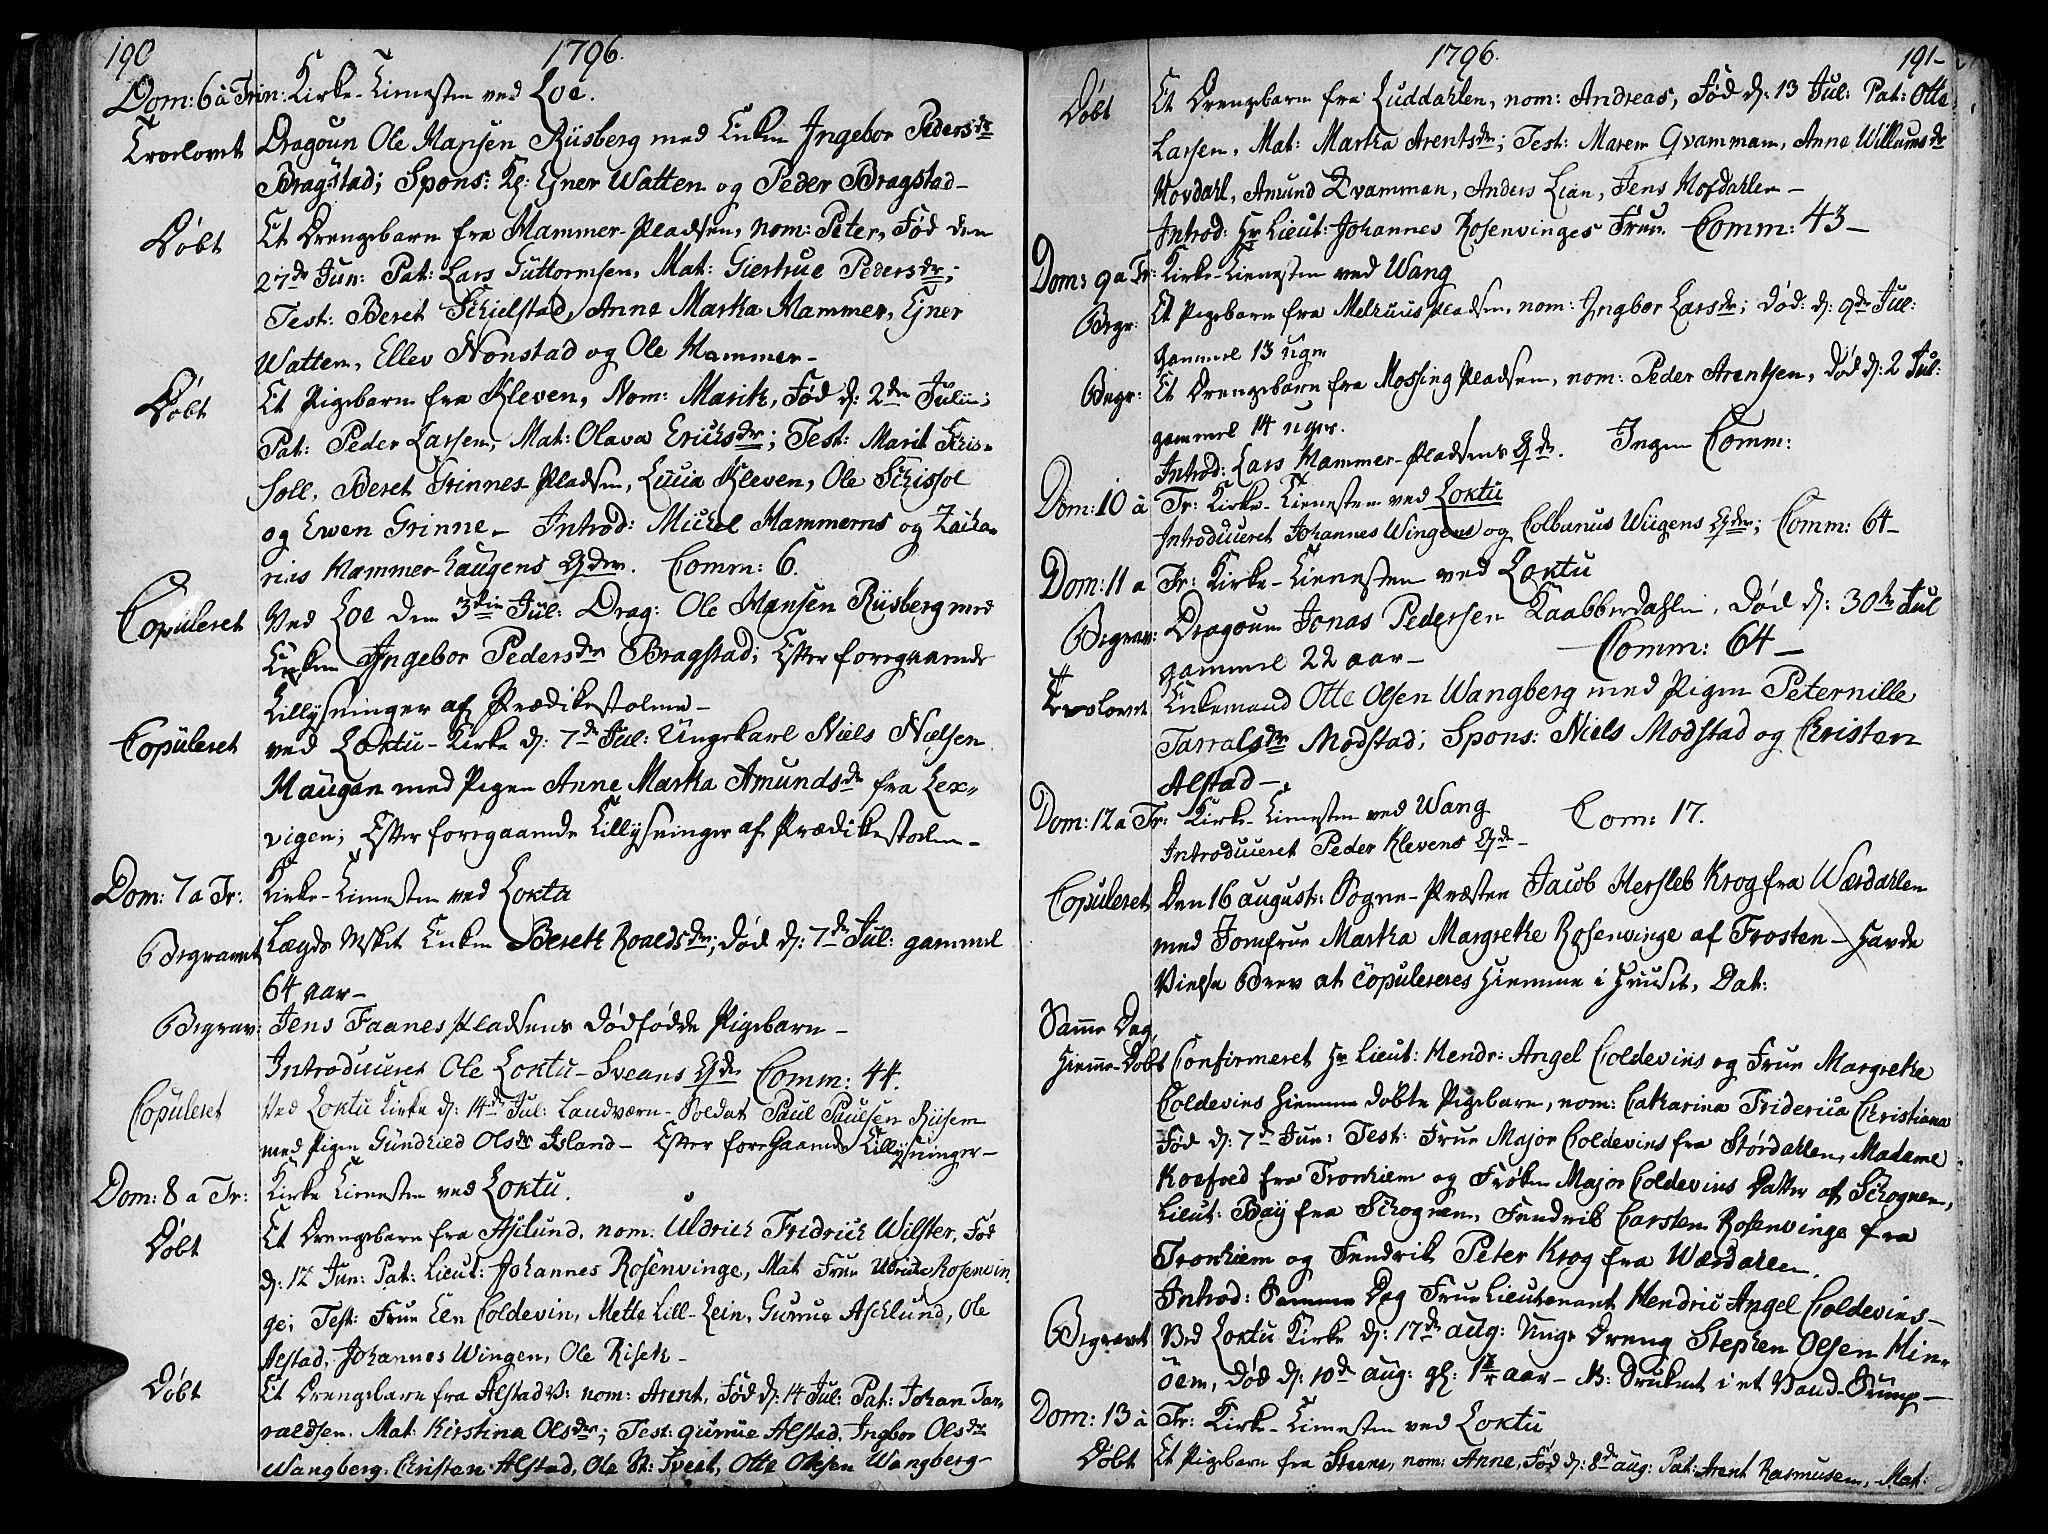 190
1796.
Dom: 6 a Trin: Kirke-Tienesten ved Loe.
Trolovet Dragoun Ole Hansen Riisberg med Enken Ingebor Pedersdr
Bragstad; Spons: Cp: Ejner Watten og Peder Bragstad-
Døbt Et Drengebarn fra Hammer-Pladsen, nom: Peter, Fød den
27de Jun: Pat: Lars Guttormsen, Mat: Giertrue Pedersdr;
Test: Beret Schielstad, Anne Martha Hammer, Ejner
Watten, Ellev Nonstad og Ole Hammer-
Døbt Et Pigebarn fra Kleven, Nom: Marith, Fød d: 2den Julii;
Pat: Peder Larsen, Mat: Olava Erichsdr; Test: Marit Schis-
soll, Beret Grinnes Pladsen, Lucia Kleven, Ole Schissol
og Ewen Grinne- Introd: Michel Hammerens og Zacha-
rias Hammer-haugens Qder. Comm: 6.
Copuleret Ved Loe den 3die Jul: Drag: Ole Hansen Riisberg med
Enken Ingebor Pedersdr Bragstad; Efter foregaaende
Tillysninger af Prædikestolene-
Copuleret ved Loktu-Kirke d: 7de Jul: Ungekarl Niels Nielsen
Haugan med Pigen Anne Martha Amundsdr fra Lex-
vigen; Efter foregaaende Tillysninger af Prædikestolen-
Dom: 7 a Tr: Kirke-Tienesten ved Loktu
Begravet Lægds Enken Bereth Roaldsdr; Død d: 7de Jul: gammel
64 aar-
Begrav: Jens Faanes Pladsens dødfødde Pigebarn-
Introduceret Ole Loktu-Sveans Qde Comm: 44.
Copuleret Ved Loktu Kirke d: 14de Jul: Landværn-Soldat Paul Paulsen Riisem
med Pigen Gundhied Olsdr Island- Efter foregaaende Tillysninger-
Dom: 8 a Tr: Kirke Tienesten ved Loktu.
Døbt Et Drengebarn fra Aslund, nom: Uldrich Fridrich Wilster, Fød
d: 12 Jun: Pat: Lieut: Johannes Rosenvinge, Mat Frue Rosenvin-
ge; Test: Frue Elen Coldevin, Mette Lill-Lein, Gurrue Aschlund, Ole
Alstad, Johannes Wingen, Ole Riseth-
Døbt Et Drengebarn fra Alstad nom: Arent, Fød d: 14 Jul: Pat: Johan Tar-
raldsen, Mat: Kirstina Olsdr; Test: gurrue Alstad, Ingbor Olsdr
Wangberg, Christen Alstad, Ole St: Sveet, Otte Olsen Wangberg-
1796.
191-
Døbt Et Drengebarn fra Luddahlen, nom: Andreas, Fød d: 13 Jul: Pat: Otte
Larsen, Mat: Martha Arentsdr; Test: Maren Qvamman, Anne Willumsdr
Hovdahl, Amund Qvamman, Anders Lian, Jens Hofdahlen-
Introd: Hr Lieut: Johannes Rosenvinges Frue. Comm: 43-
Dom: 9 a Tr: Kirke-Tienesten ved Wang
Begr: Et Pigebarn fra Melhuus Pladsen, nom: Ingbor Larsdr; Død: d: 9de Jul:
gammel 13 uger
Begr: Et Drengebarn fra Mossing Pladsen, nom: Peder Arentsen, Død d: 2 Jul:
gammel 14 uger.
Introd: Lars Hammer-Pladsens Qde. Ingen Comm:
Dom: 10 a Tr: Kirke-Tienesten ved Loktu
Introduceret Johannes Wingens og Colbanus Wiigens Qder; Comm: 64-
Dom: 11 a Tr: Kirke-Tienesten ved Loktu
Begrav: Dragoun Jonas Pedersen Kaabberdahlen, Død d: 30te Jul
gammel 22 aar- Comm: 64-
Trolovet Enkemand Otte Olsen Wangberg med Pigen Peternille
Tarralsdr Modstad; Spons: Niels Modstad og Christen
Alstad-
Dom: 12 a Tr: Kirke-Tienesten ved Wang Com: 17.
Introduceret Peder Klevens Qde-
Copuleret Den 16 august: Sogne-Præsten Jacob Hersleb Krog fra Wærdahlen
med Jomfrue Martha Margrethe Rosenvinge af Frosten- Havde
Vielse Brev at copuleres Hiemme i Huuset, Dat:
Samme Dag
Hiemme-Døbt Confirmeret Hr Lieut: Hendr: Angel Coldevins og Frue Margrethe
Coldevins Hiemme døbte Pigebarn, nom: Catharina Friderica Christiana
Fød d: 7de Jun: Test: Frue Major Coldevins fra Størdahlen, Madame
Koefoed fra Tronhiem og Frøken Major Coldevins Datter af Schognen,
Lieut: Bay fra Schognen, Fendrik Carsten Rosenvinge fra
Tronhiem og Fendrik Peter Krog fra Wærdahlen.
Introd: Samme Dag Frue Lieutenant Hendric Angel Coldevins-
Begravet Ved Loktu Kirke d: 17de aug: Unge Dreng Stephen Olsen Hin-
öem, Død d: 10de aug: gl: aar- N: Druknet i et Vand-
Dom: 13 a Tr: Kirke-Tienesten ved Loktu
Døbt Et Pigebarn fra Steene, nom: Anne, Fød d: 8de aug: Pat: Arent Rasmusen, Mat: